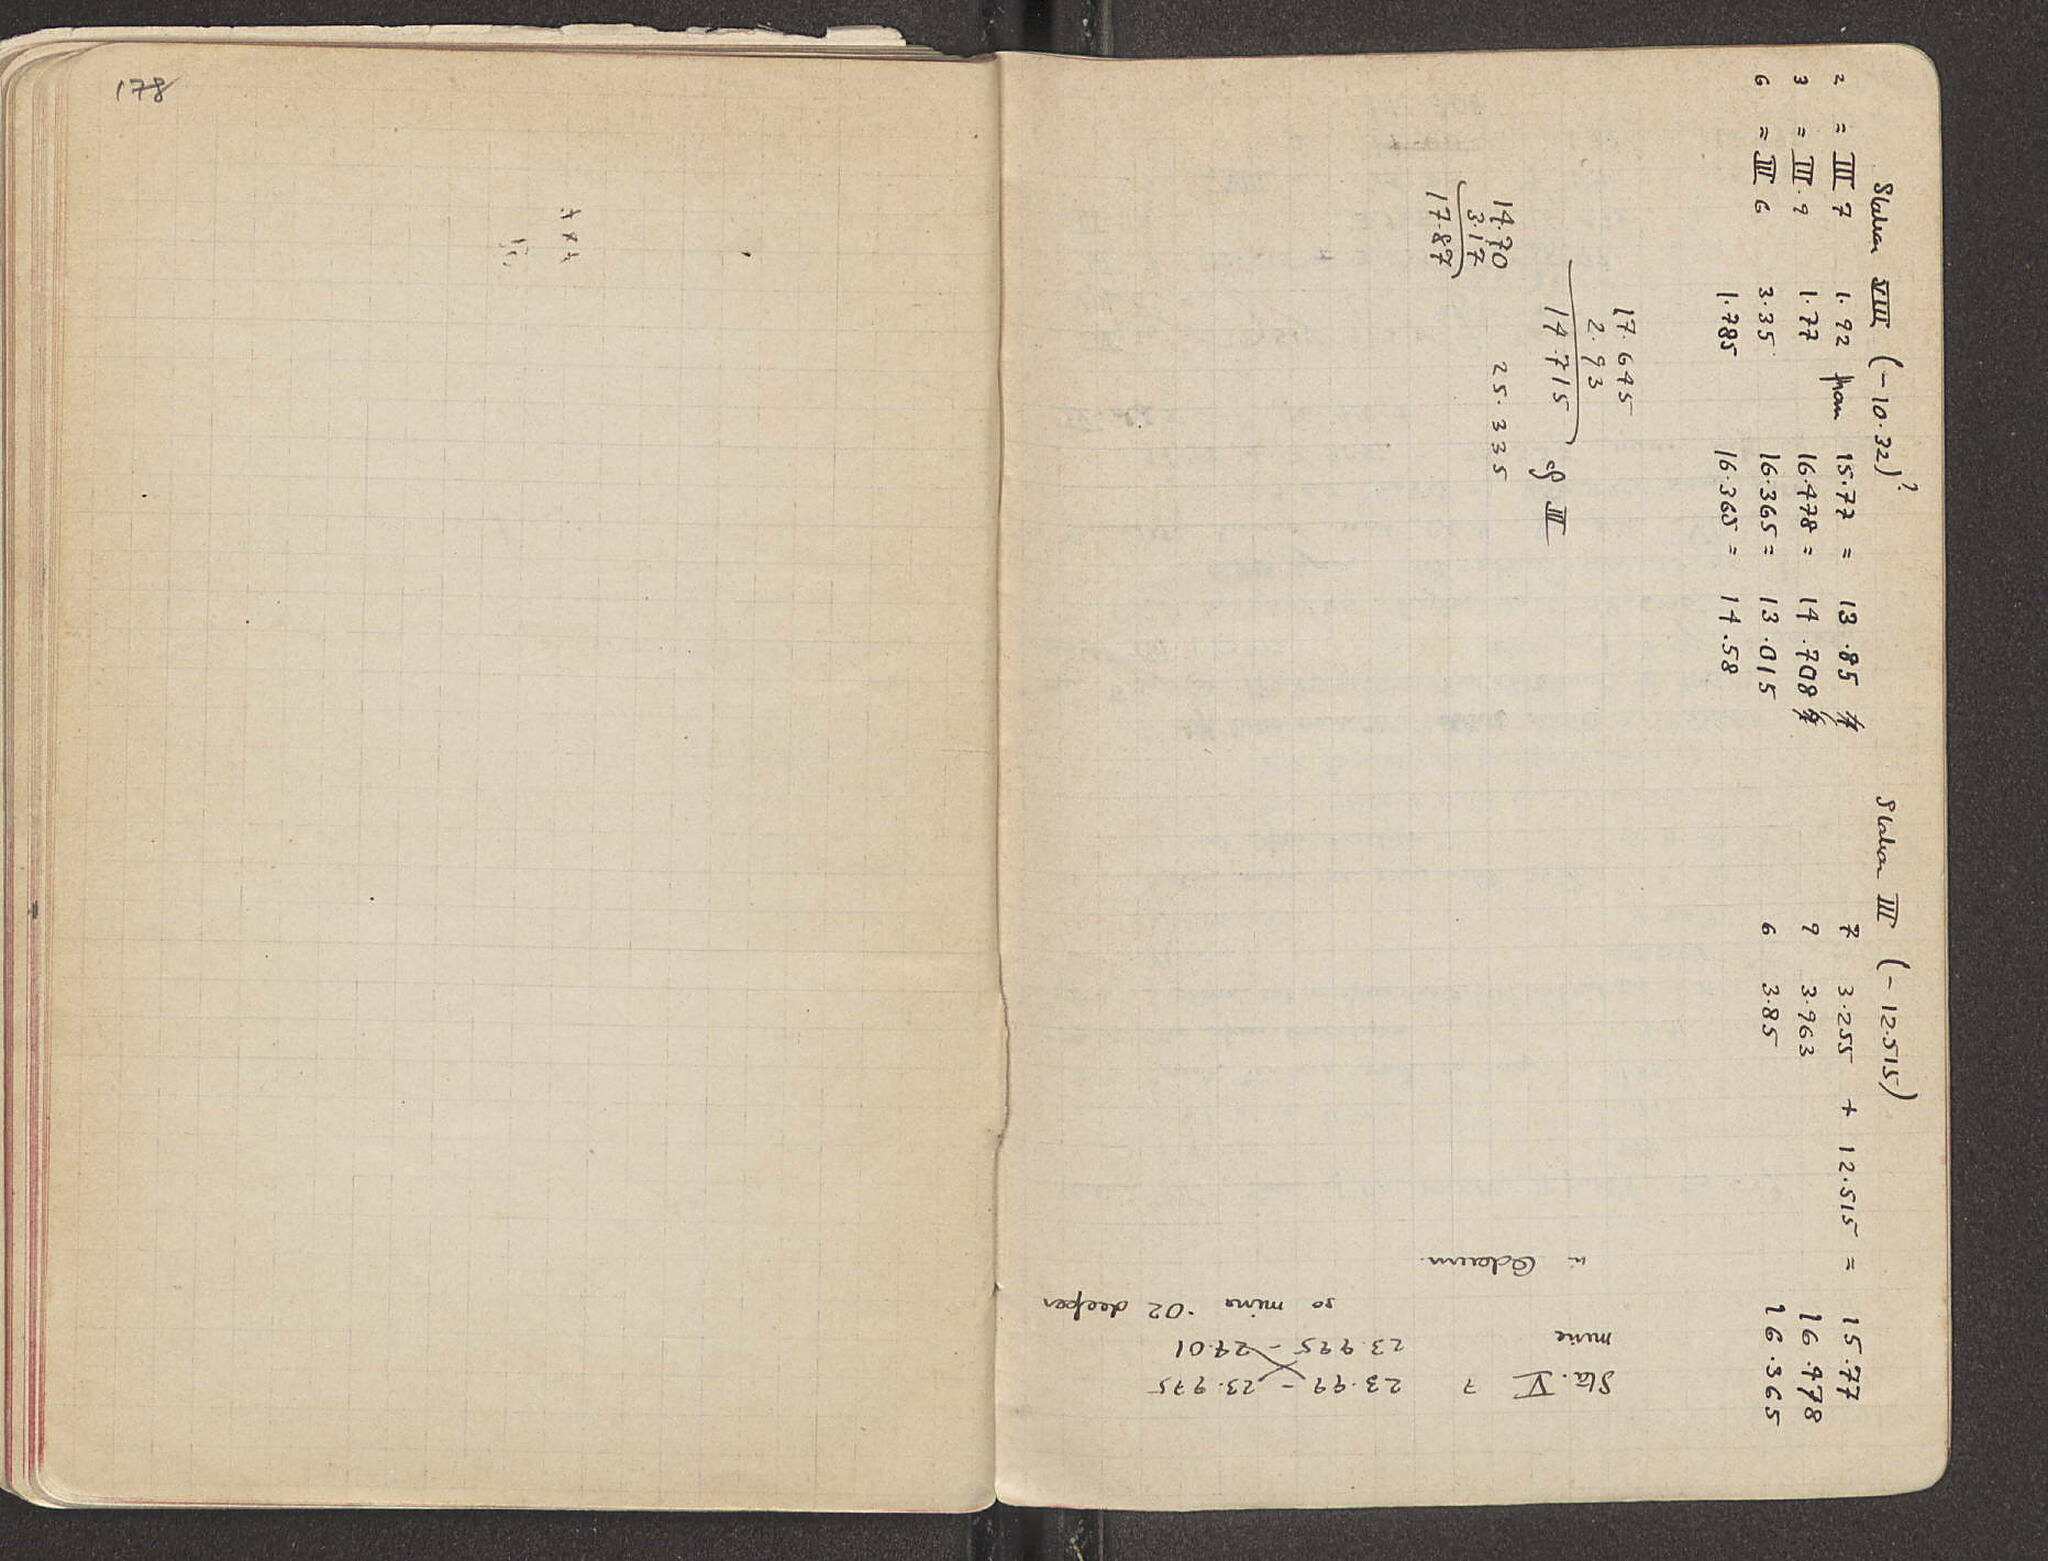 178
Station VIII (-10.32)? Station III (-12.515)
2 = III 7 1.92 from 15.77 = 13.85 ft 7 3.255 + 12.515 = 15.77
3 = III. 9 1.77 16.478 = 14.708 ft 9 3.963 16.478
6 = III 6 3.35 16.365 = 13.015 6 3.85 16.365
1.785 16.365 = 14.58
17.645
2.93
14.715 of III
14.70 25.335
3.17
17.87
Sta. V 7 23.99 - 23.975
mine 23.995 - 24.01
so mine .02 deeper